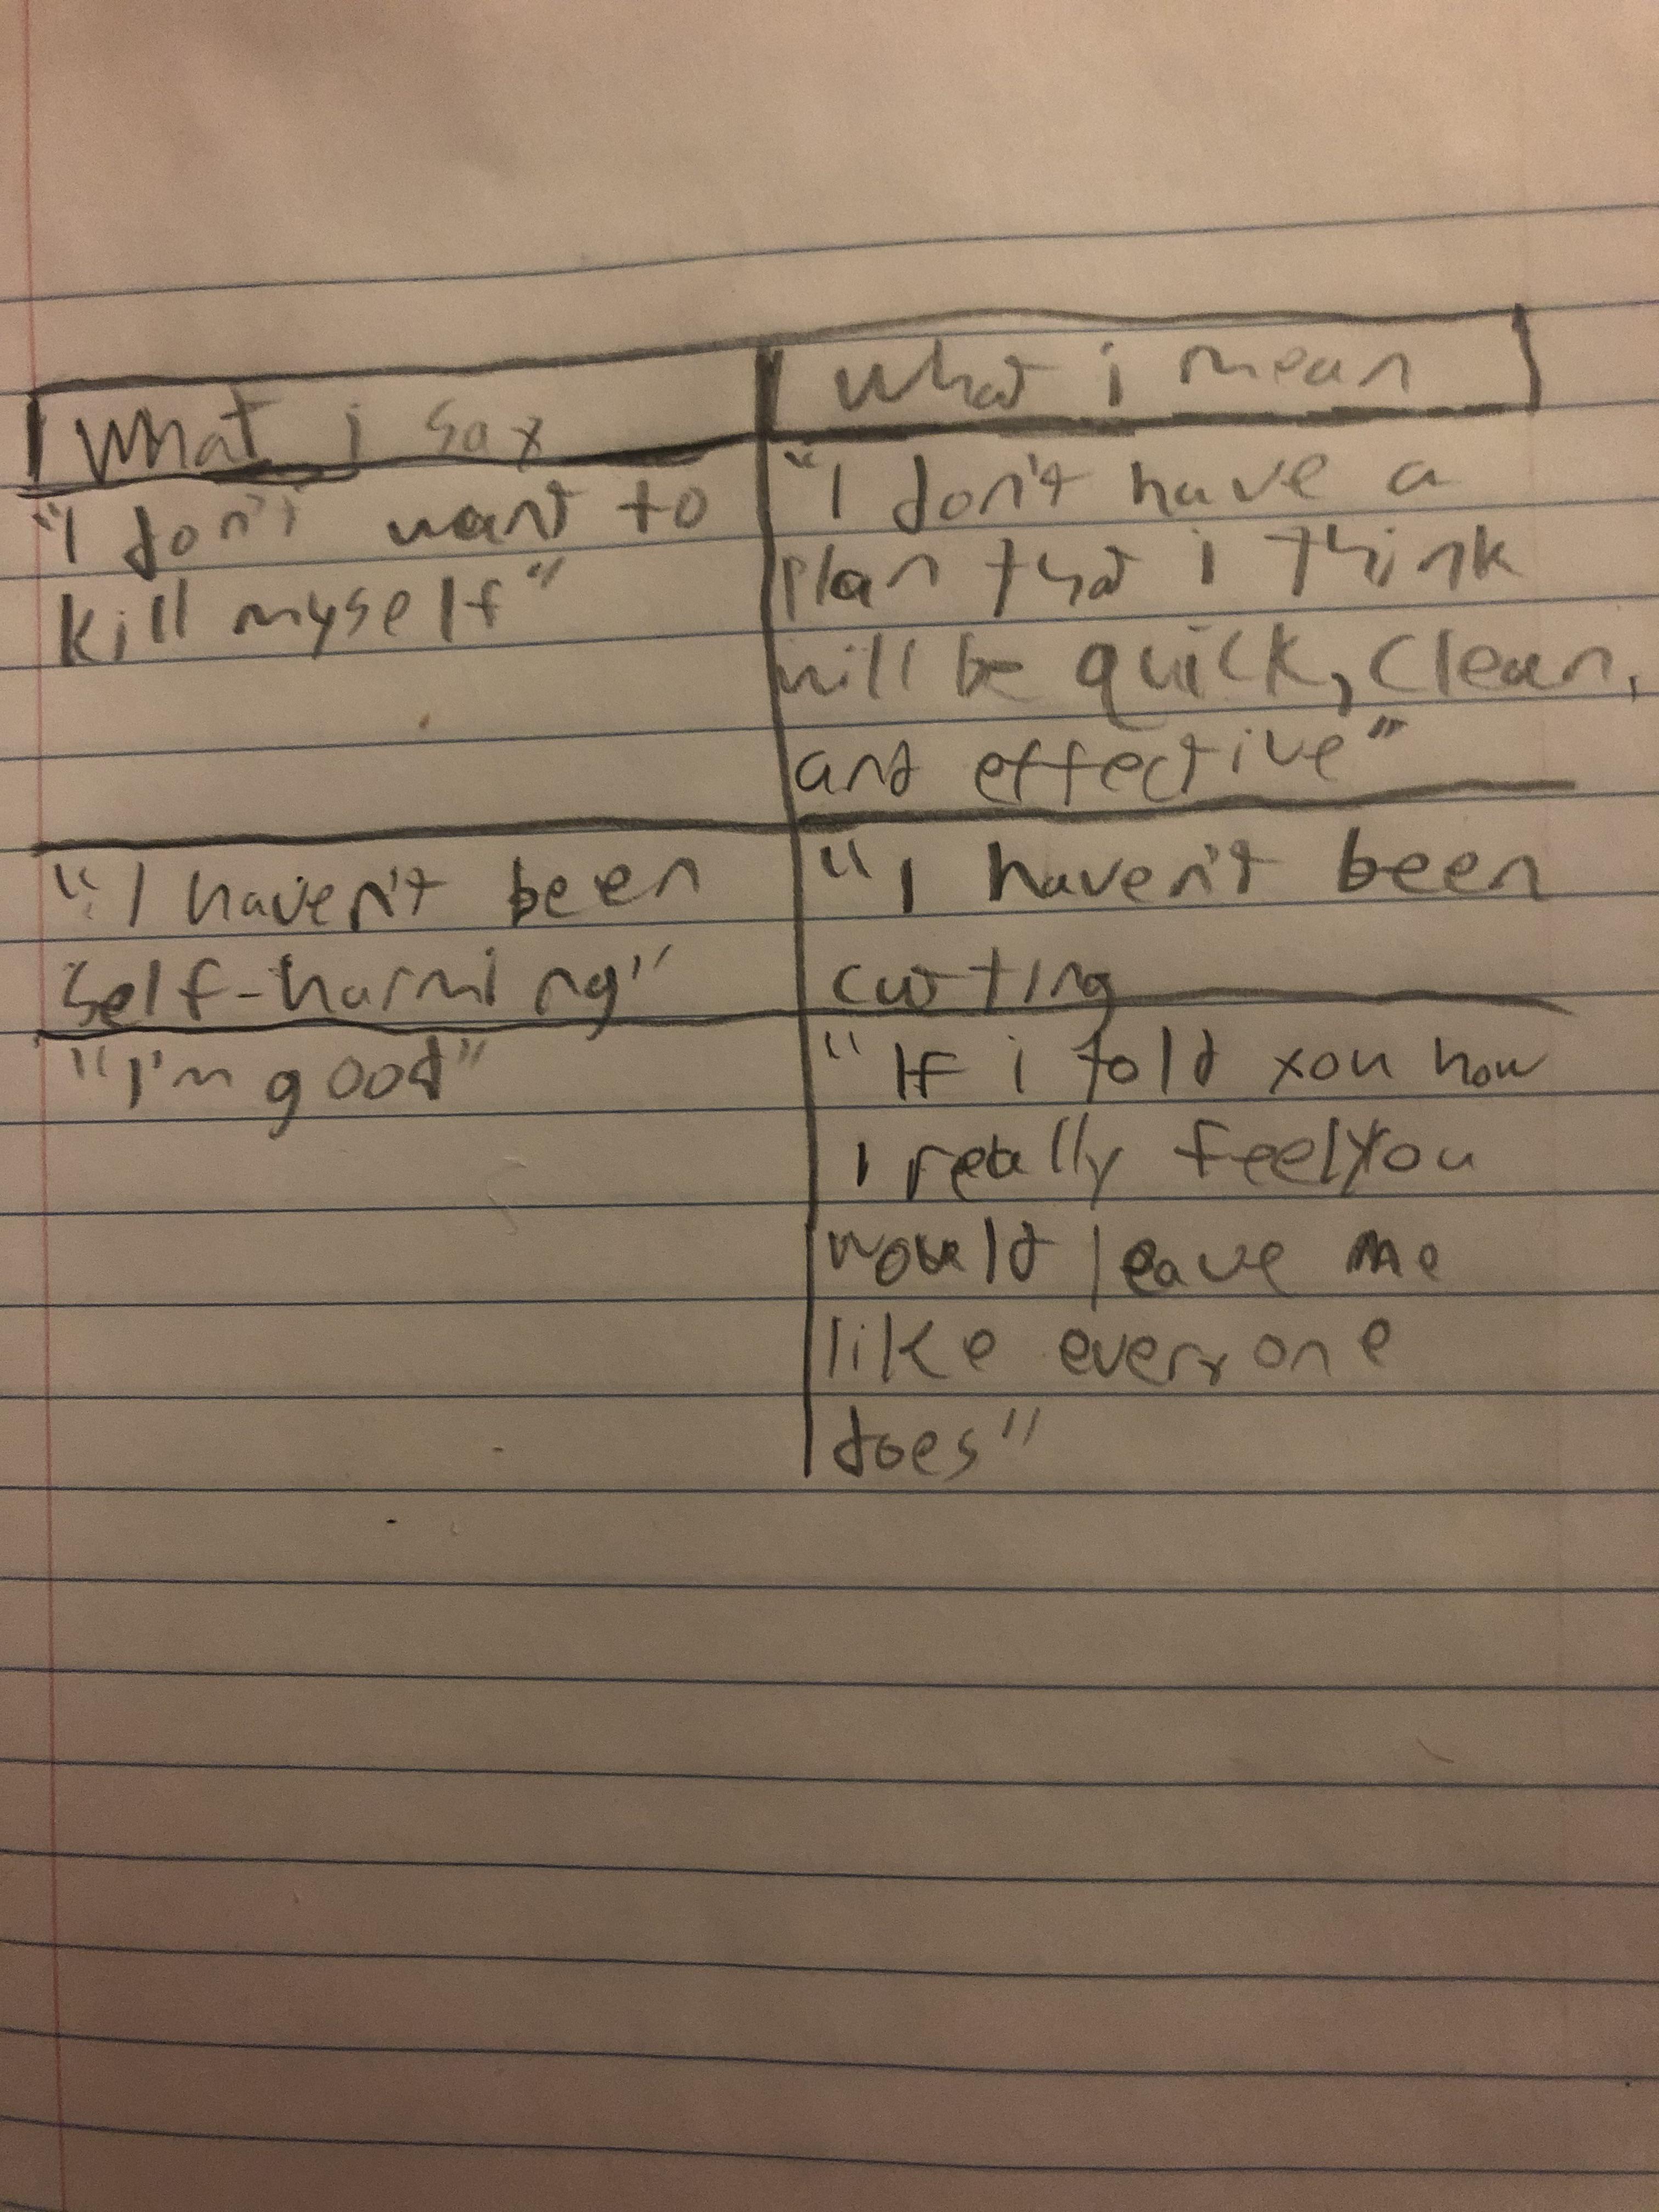 What i say
What i mean
"I don't want to
kill myself"
"I don't have a
plan that i think
will be quick, clean,
and effective"
"I haven't been
self-harming"
"I haven't been
cutting
"I'm good"
"If i told you how
I really feel you
would leave me
like everyone
does"